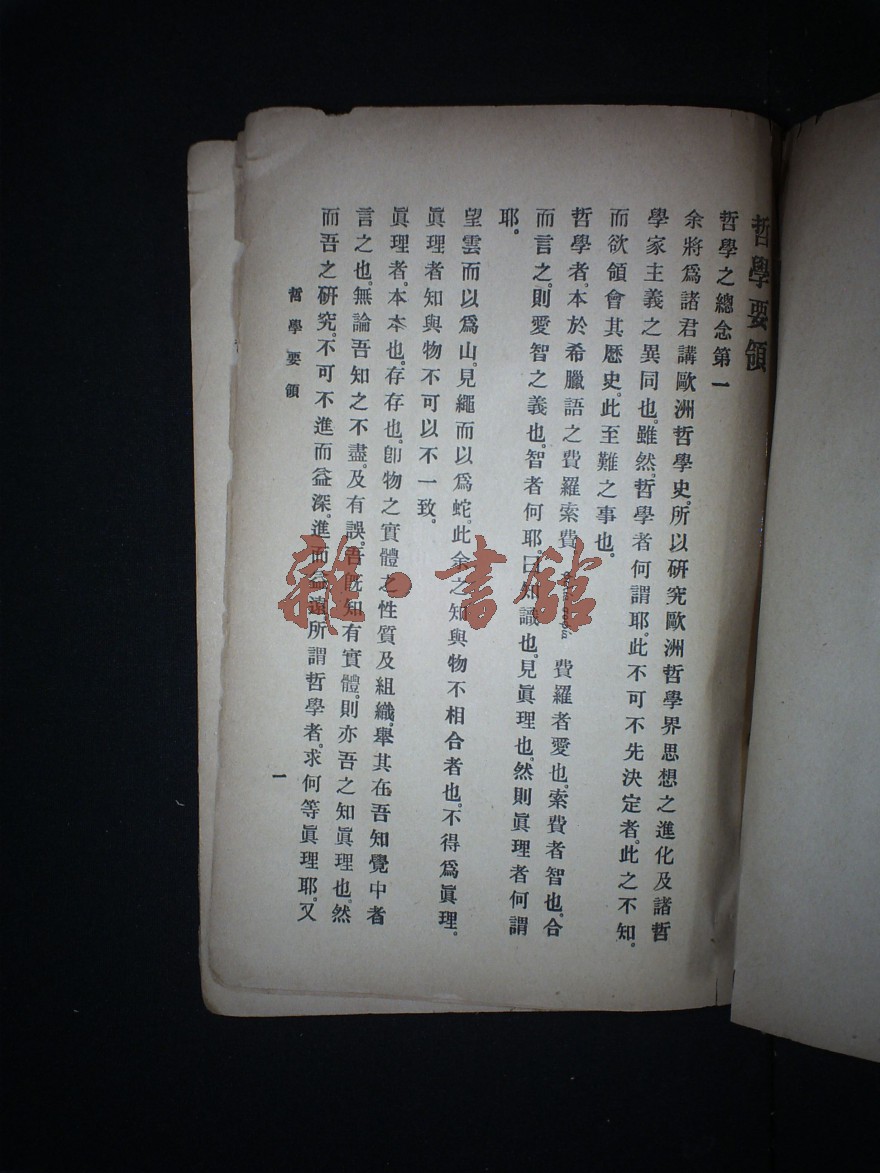 哲學要領
哲學之總念第一
余將爲諸君講歐洲哲學史。所以研究歐洲哲學界思想之進化及諸哲
學家主義之異同也。雖然。哲學者何謂耶。此不可不先決定者。此之不知。
而欲領會其歷史。此至難之事也。
哲學者。本於希臘語之費羅索費 費羅者愛也。索費者智也。合
而言之。則愛智之義也。智者何耶。曰知識也。見眞理也。然則眞理者何謂
耶。
望雲而以爲山。見繩而以爲蛇。此余之知與物不相合者也。不得爲眞理。
眞理者知與物不可以不一致。
眞理者。本本也。存存也。卽物之實體之性質及組織。舉其在吾知覺中者
言之也。無論吾知之不盡。及有誤。吾旣知有實體。則亦吾之知眞理也。然
而吾之研究。不可不進而益深。進而益遠。所謂哲學者。求何等眞理耶。又
哲學要領
一
雜·書館